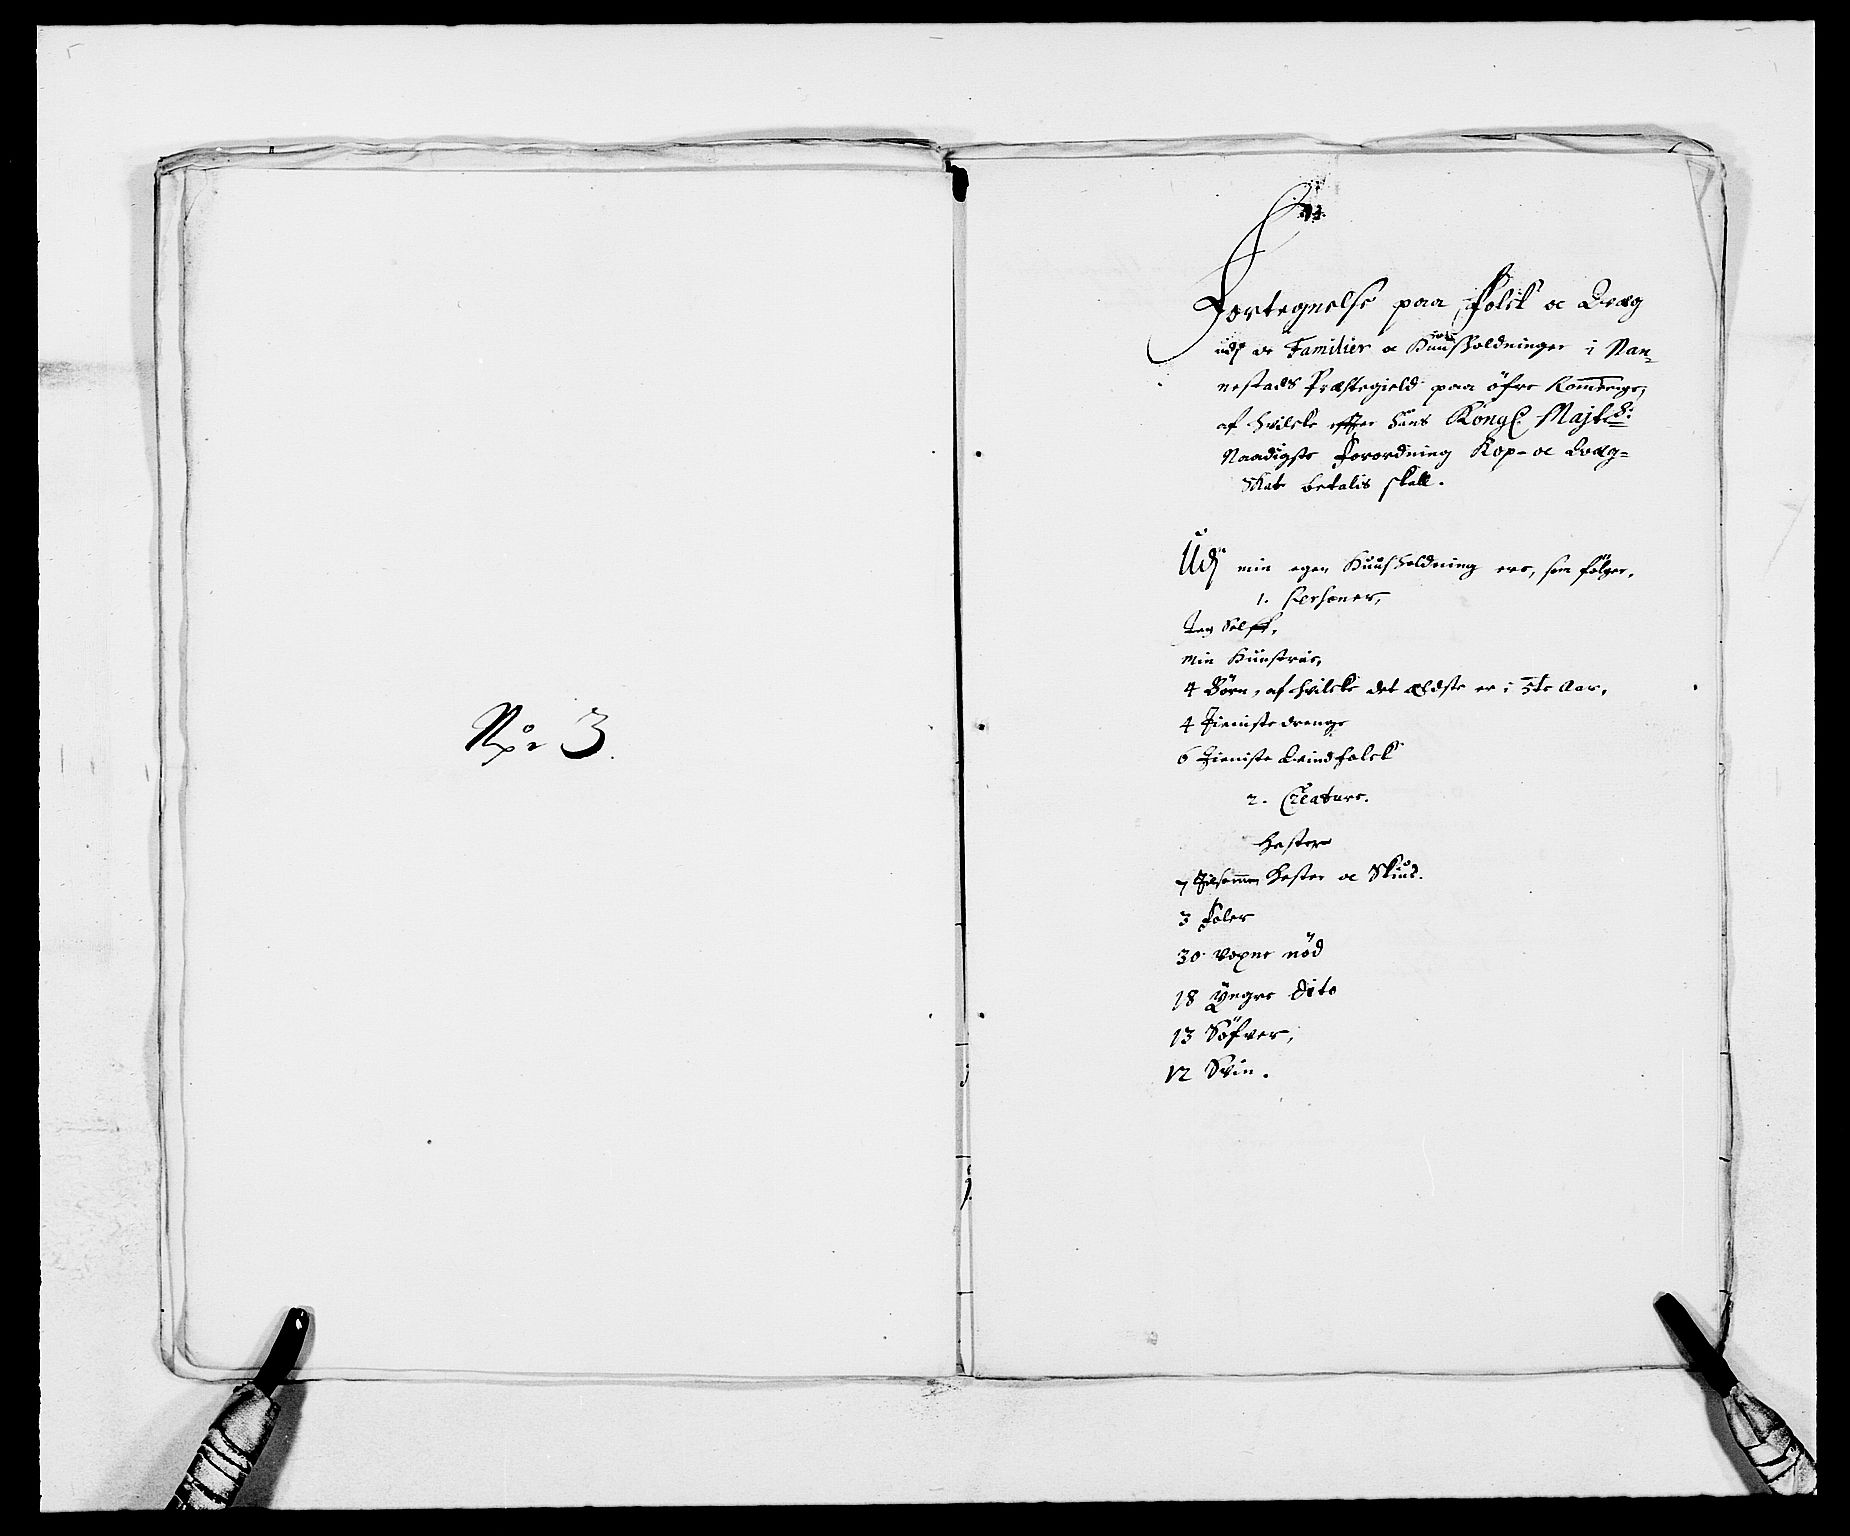 No 3.
Fortegnelse paa Folck oc Qvæg
udj de Familier oc Huusholdninger i Nan-
nestads Præstegield paa öfre Romerige,
af hvilcke effter Hans Kongl. Majts:
Naadigste Forordning Kop- oc Qvæg-
Skat betalis skall.
Udj min egen Huusholdning ere, som fölger.
1. Personer,
Jeg Selff,
min Huustrue,
4 Börn, af hvilcke det ældste er i 5te Aar.
4 Tieniste drenge
6 Tieniste Qvindfolck
2. Creature.
Hester
7 Tilsammen Hester oc Skiud.
3 Foler
30 voxne nöd
18 Yngre dito
13 Söfver,
12 Svin.